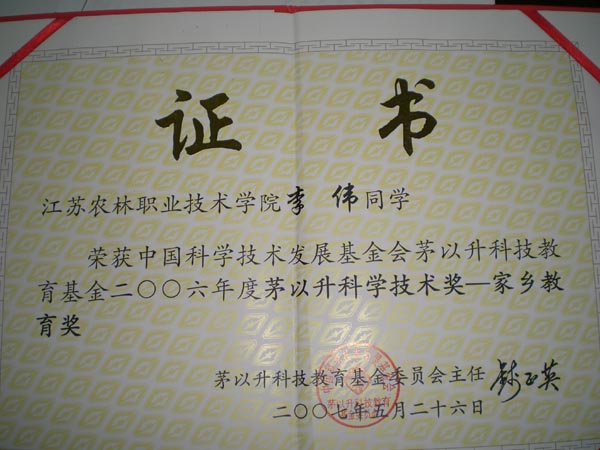 证 书
江苏农林职业技术学院李 伟同学
荣获中国科学技术发展基金会茅以升科技教
育基金二〇〇六年度茅以升科学技术奖—家乡教
育奖
茅以升科技教育基金委员会主任
二〇〇七年五月二十六日